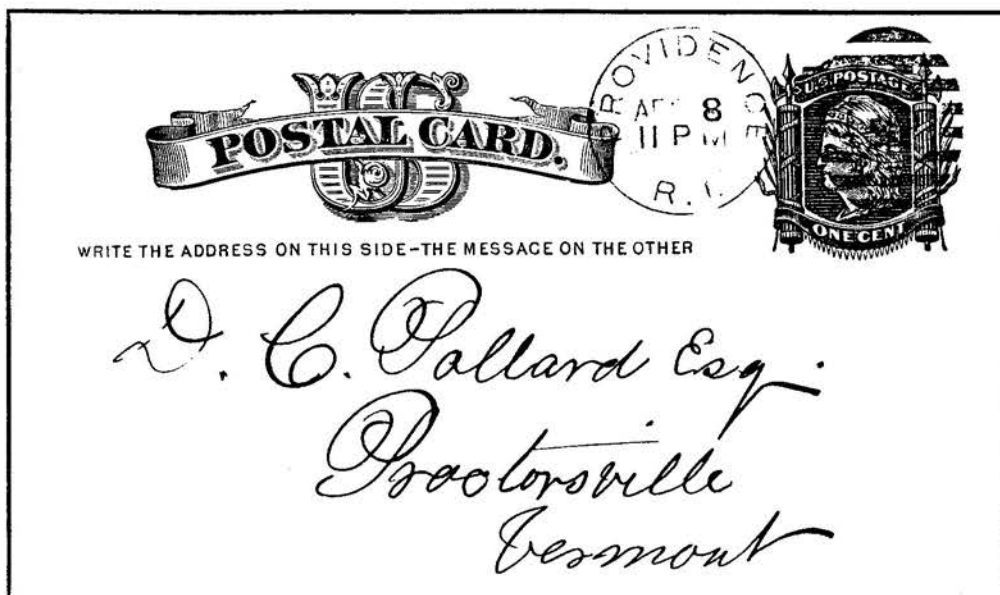 US
POSTAL CARD.
PROVIDENCE
APR 8
11 PM
R.I.
U.S. POSTAGE
ONE CENT
WRITE THE ADDRESS ON THIS SIDE–THE MESSAGE ON THE OTHER
D. C. Pollard Esq.
Proctorsville
Vermont